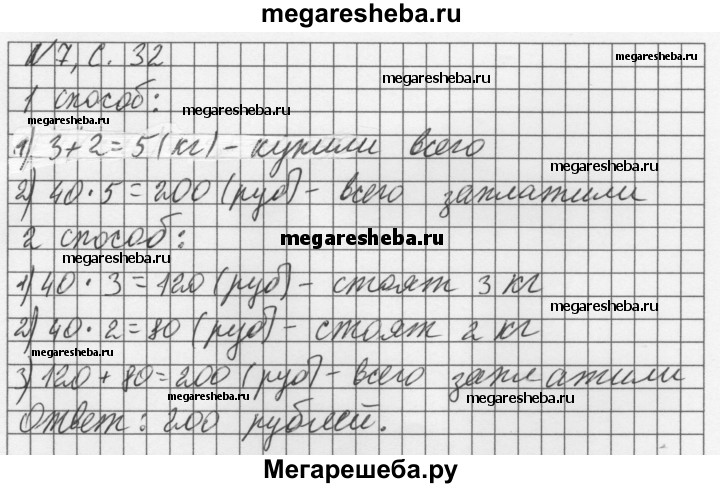 megaresheba.ru
N7, с. 32
megaresheba.ru
megaresheba.ru
1 способ:
megaresheba.ru
1) 3+2=5 (кг) - купили всего
2) 40·5=200 (руб) - всего заплатили
2 способ:
megaresheba.ru
megaresheba.ru
1) 40·3=120 (руб) - стоят 3 кг
2) 40·2=80 (руб) - стоят 2 кг
megaresheba.ru
megaresheba.ru
3) 120+80=200 (руб) - всего заплатили
megaresheba.ru
Ответ: 200 рублей.
megaresheba.ru
Мегарешеба.ру